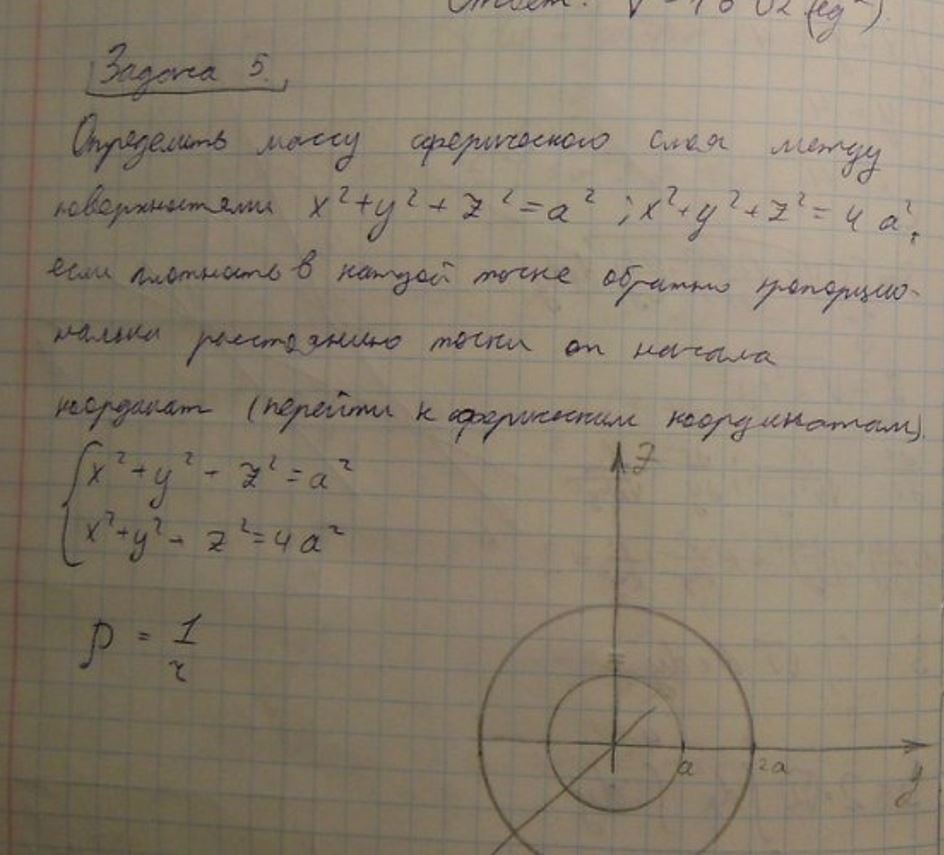 Ответ: V =
Задача 5.
Определить массу сферического слоя между
поверхностями x²+y²+z²=a²; x²+y²+z²=4a²,
если плотность в каждой точке обратно пропорцио-
нальна расстоянию точки от начала
координат (перейти к сферическим координатам).
x²+y²+z²=a²
x²+y²+z²=4a²
ρ = 1/r
z
a 2a
y